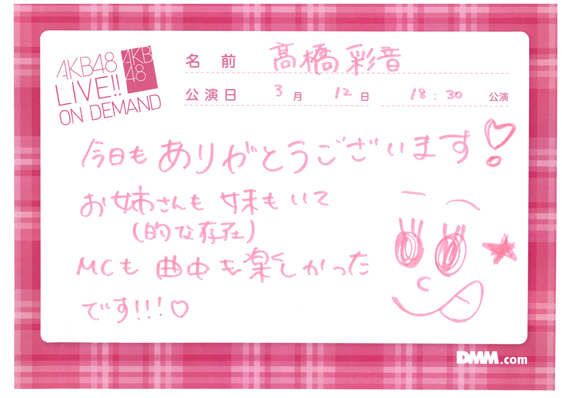 AKB48
LIVE!!
ON DEMAND
AKB
48
名 前 髙橋 彩音
公演日 3月 12日 18:30 公演
今日も ありがとうございます!
お姉さんも 妹もいて
(的な存在)
MCも 曲中も楽しかった
です!!!♡
DMM.com